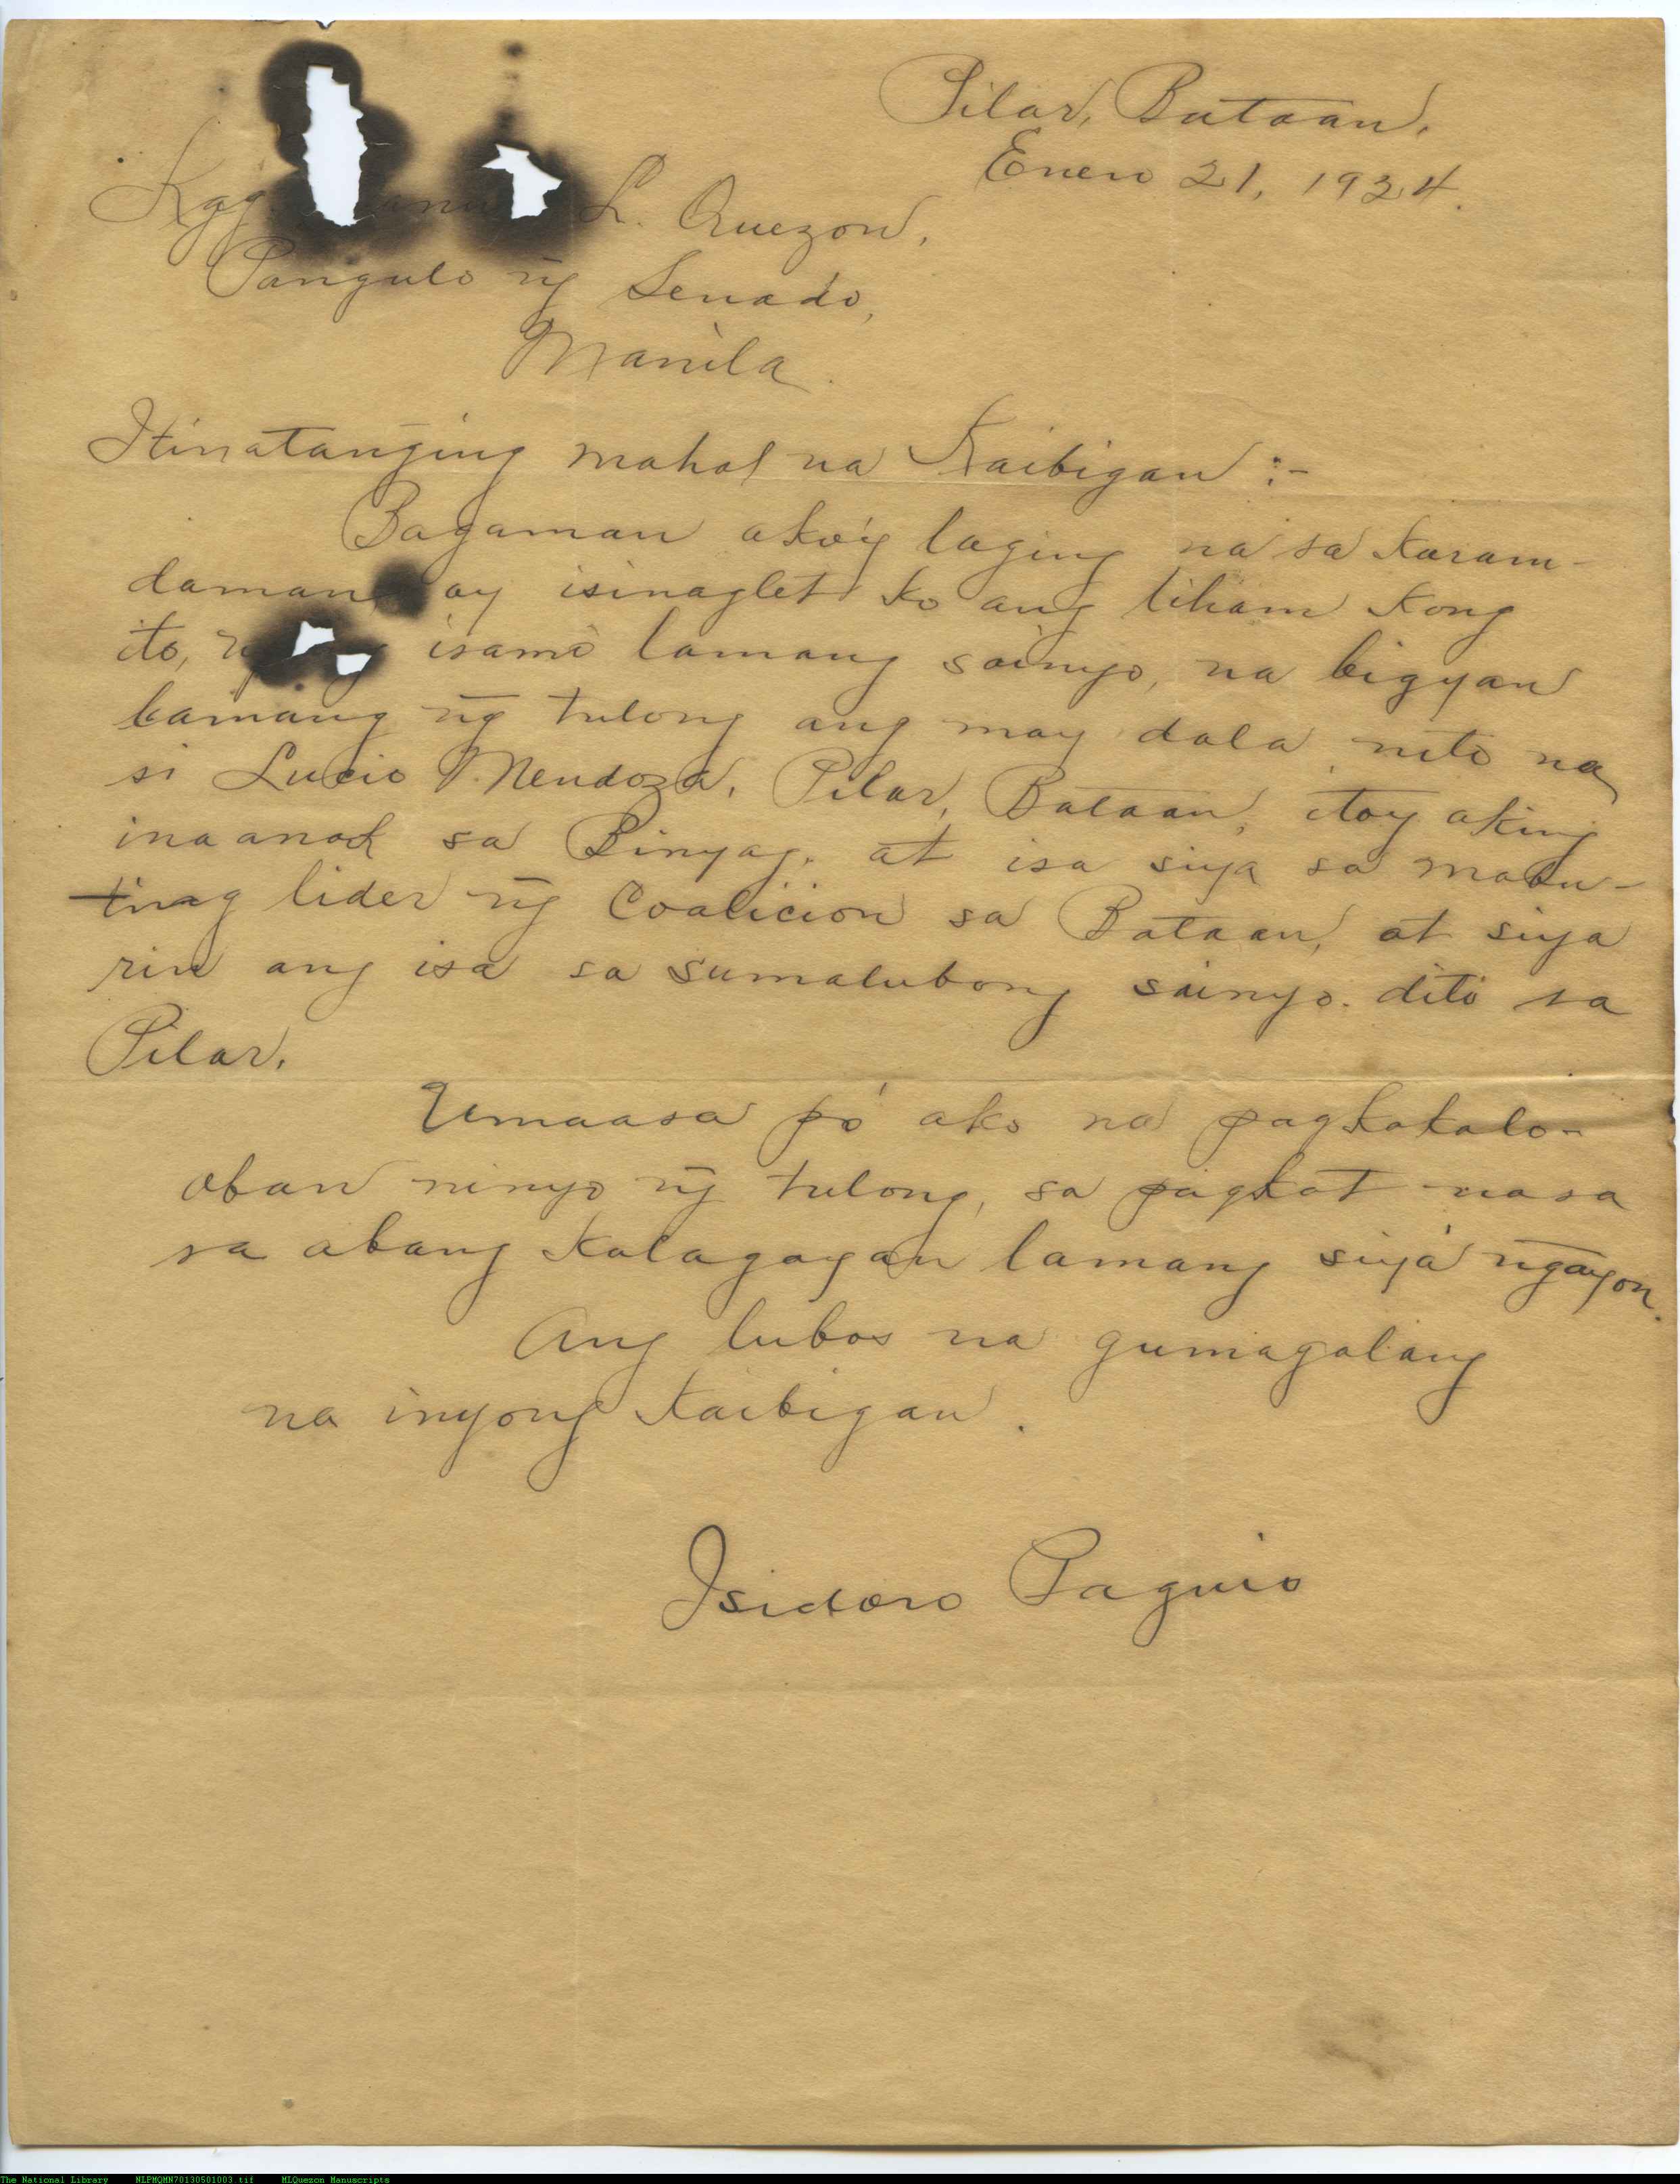 Pilar, Bataan,
Enero 21, 1924.
Kgg. L. Quezon,
Pangulo ng̃ Senado,
Manila.
Itinatanging mahal na Kaibigan :-
Bagaman ako'y laging na sa karam-
daman ay isinaglet ko ang liham kong
ito, isamo lamang sainyo, na bigyan
lamang ng̃ tulong ang may dala nito na
si Lucio Mendoza, Pilar, Bataan, itoy aking
inaanak sa Binyag, at isa siya sa mabu-
ting lider ng̃ Coalicion sa Bataan, at siya
rin ang isa sa sumalubong sainyo. dito sa
Pilar.
Umaasa pó ako na pagkakalo-
oban ninyo ng̃ tulong, sa pagkat nasa
sa abang kalagayan lamang siya ng̃ayon.
Ang lubos na gumagalang
na inyong kaibigan.
Isidoro Paguio
The National Library NLPMQMN70130501003.tif MLQuezon Manuscripts